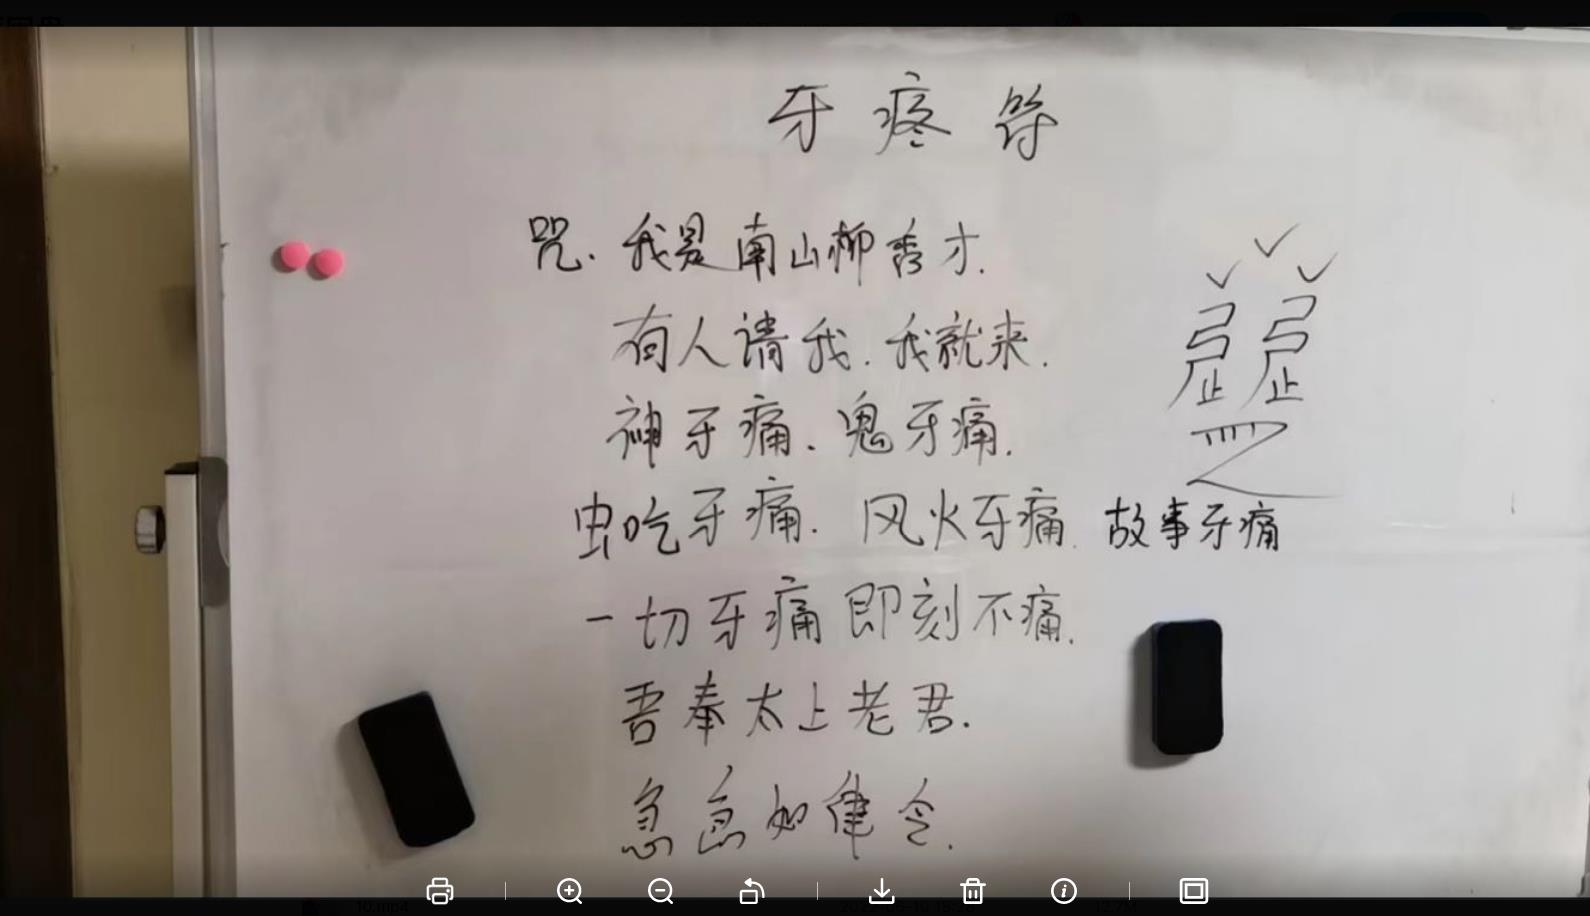 牙疼符
咒.我是南山柳秀才.
有人请我.我就来.
神牙痛.鬼牙痛.
虫吃牙痛.风火牙痛.故事牙痛
一切牙痛即刻不痛.
吾奉太上老君.
急急如律令.